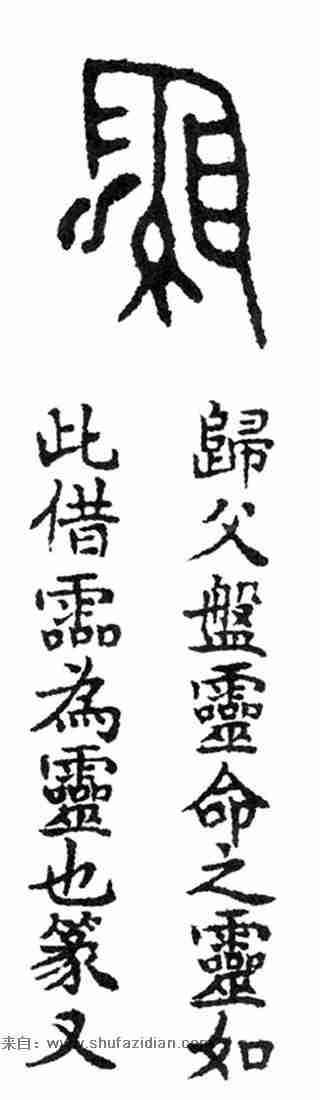 歸父盤靈命之靈如
此借霝為靈也篆又
来自：www.shufazidian.com